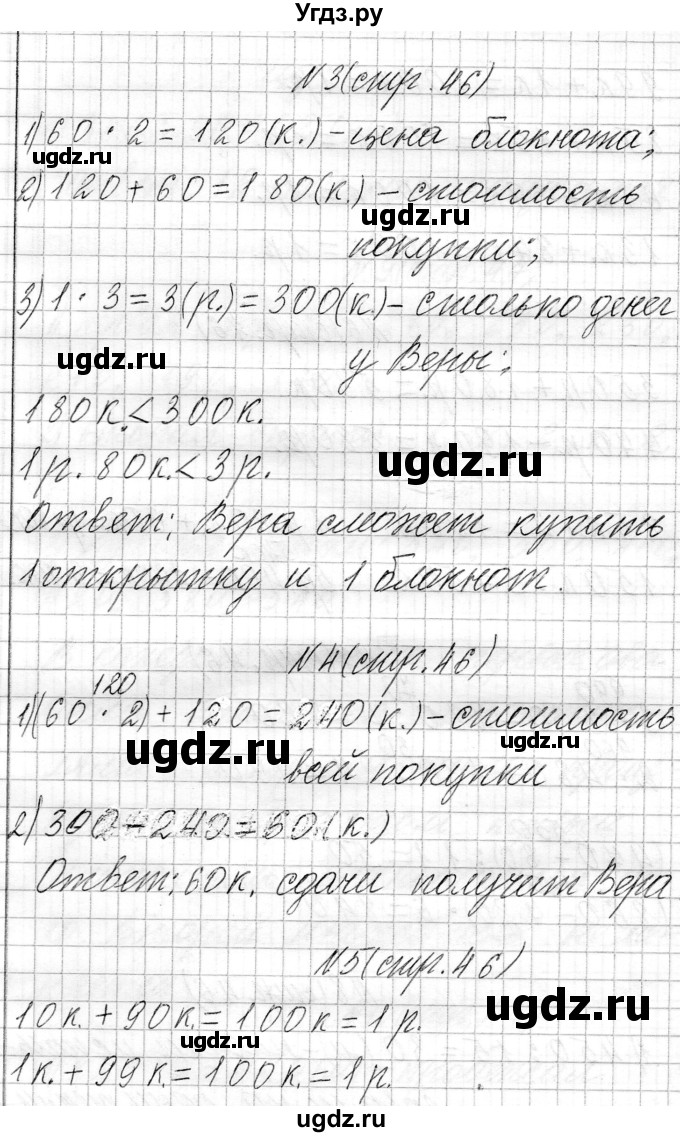 Угдз.ру
№3 (стр. 46)
1) 60 · 2 = 120 (к.) – цена блокнота;
ugdz.ru
2) 120 + 60 = 180 (к.) – стоимость
ugdz.ru
покупки;
3) 1 · 3 = 3 (р.) = 300 (к.) – столько денег
ugdz.ru
у Веры;
180 к. < 300 к.
ugdz.ru
1 р. 80 к. < 3 р.
Ответ: Вера сможет купить
1 открытку и 1 блокнот.
№4 (стр. 46)
120
1) (60 · 2) + 120 = 240 (к.) – стоимость
ugdz.ru ugdz.ru
всей покупки
2) 300 – 240 = 60 (к.)
Ответ: 60 к. сдачи получит Вера
№5 (стр. 46)
ugdz.ru
10 к. + 90 к. = 100 к = 1 р.
ugdz.ru
1 к. + 99 к. = 100 к. = 1 р.
ugdz.ru